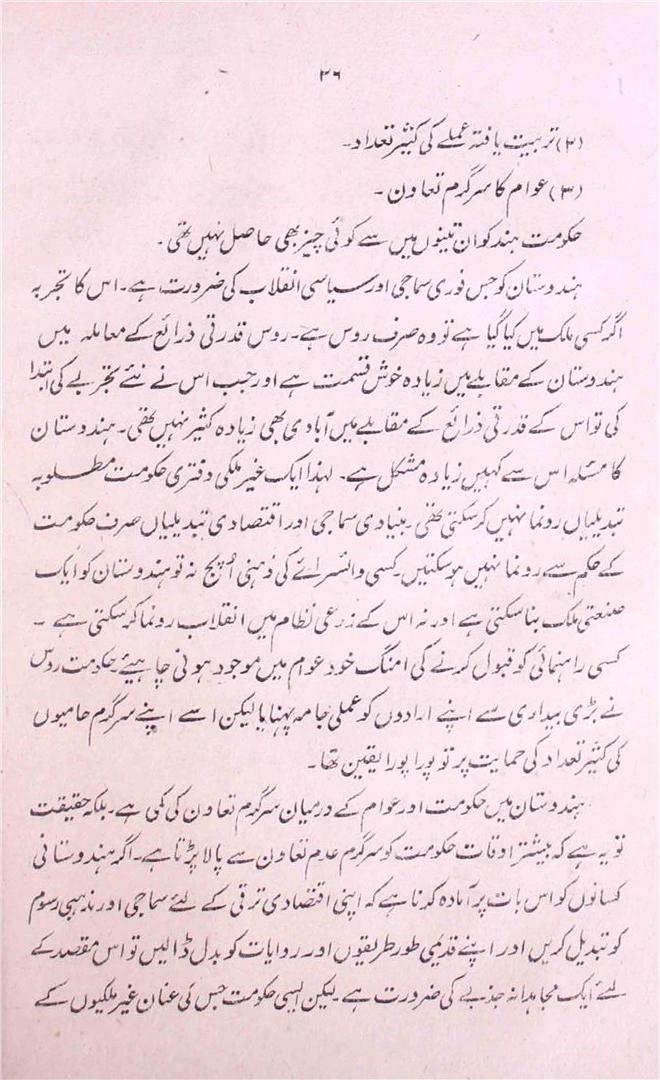 ۳۶
(۲) تربیت یافتہ عملے کی کثیر تعداد۔
(۳) عوام کا سرگرم تعاون ۔
حکومت ہند کو ان تینوں میں سے کوئی چیز بھی حاصل نہیں تھی ۔
ہندوستان کو جس فوری سماجی اور سیاسی انقلاب کی ضرورت ہے۔ اس کا تجربہ
اگر کسی ملک میں کیا گیا ہے تو وہ صرف روس ہے۔ روس قدرتی ذرائع کے معاملہ میں
ہندوستان کے مقابلے میں زیادہ خوش قسمت ہے اور جب اس نے نئے تجربے کی ابتدا
کی تو اس کے قدرتی ذرائع کے مقابلے میں آبادی بھی زیادہ کثیر نہیں تھی۔ ہندوستان
کا مسئلہ اس سے کہیں زیادہ مشکل ہے۔ لہذا ایک غیر ملکی دفتری حکومت مطلوبہ
تبدیلیاں رونما نہیں کر سکتی تھی۔ بنیادی سماجی اور اقتصادی تبدیلیاں صرف حکومت
کے حکم سے رونما نہیں ہو سکتیں۔ کسی وائسرائے کی ذہنی اُپج نہ تو ہندوستان کو ایک
صنعتی ملک بنا سکتی ہے اور نہ اس کے زرعی نظام میں انقلاب رونما کر سکتی ہے ۔
کسی راہنمائی کو قبول کرنے کی امنگ خود عوام میں موجود ہونی چاہیئے۔ حکومت روس
نے بڑی بیداری سے اپنے ارادوں کو عملی جامہ پہنایا لیکن اسے اپنے سرگرم حامیوں
کی کثیر تعداد کی حمایت پر تو پورا پورا یقین تھا۔
ہندوستان میں حکومت اور عوام کے درمیان سرگرم تعاون کی کمی ہے۔ بلکہ حقیقت
تو یہ ہے کہ بیشتر اوقات حکومت کو سرگرم عدم تعاون سے پالا پڑتا ہے۔ اگر ہندوستانی
کسانوں کو اس بات پر آمادہ کرنا ہے کہ اپنی اقتصادی ترقی کے لئے سماجی اور مذہبی رسوم
کو تبدیل کریں اور اپنے قدیمی طور طریقوں اور روایات کو بدل ڈالیں تو اس مقصد کے
لئے ایک مجاہدانہ جذبے کی ضرورت ہے لیکن ایسی حکومت جس کی عنان غیر ملکیوں کے